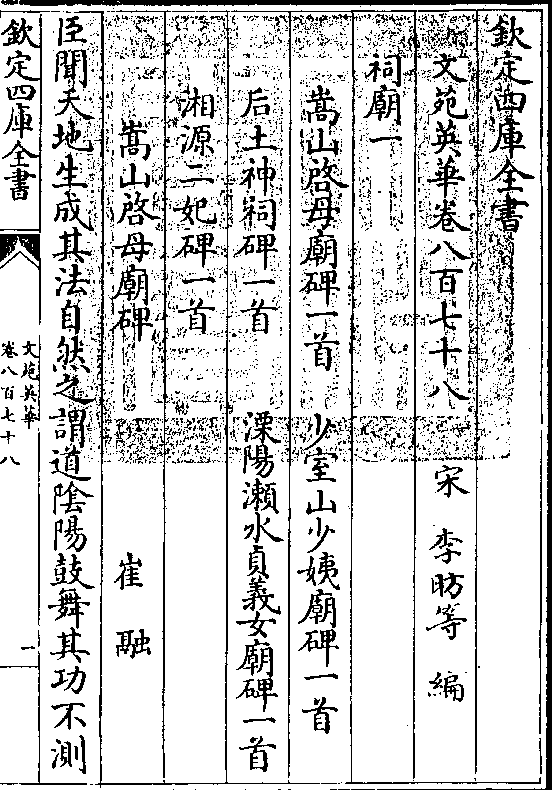 欽定四庫全書
文苑英華卷八百七十八
宋 李昉等 編
祠廟一
嵩山啓母廟碑一首 少室山少姨廟碑一首
后土神祠碑一首 溧陽瀨水貞義女廟碑一首
湘源二妃碑一首
嵩山啓母廟碑 崔融
臣聞天地生成其法自然之謂道陰陽鼓舞其功不測
欽定四庫全書
文苑英華
卷八百七十八
一